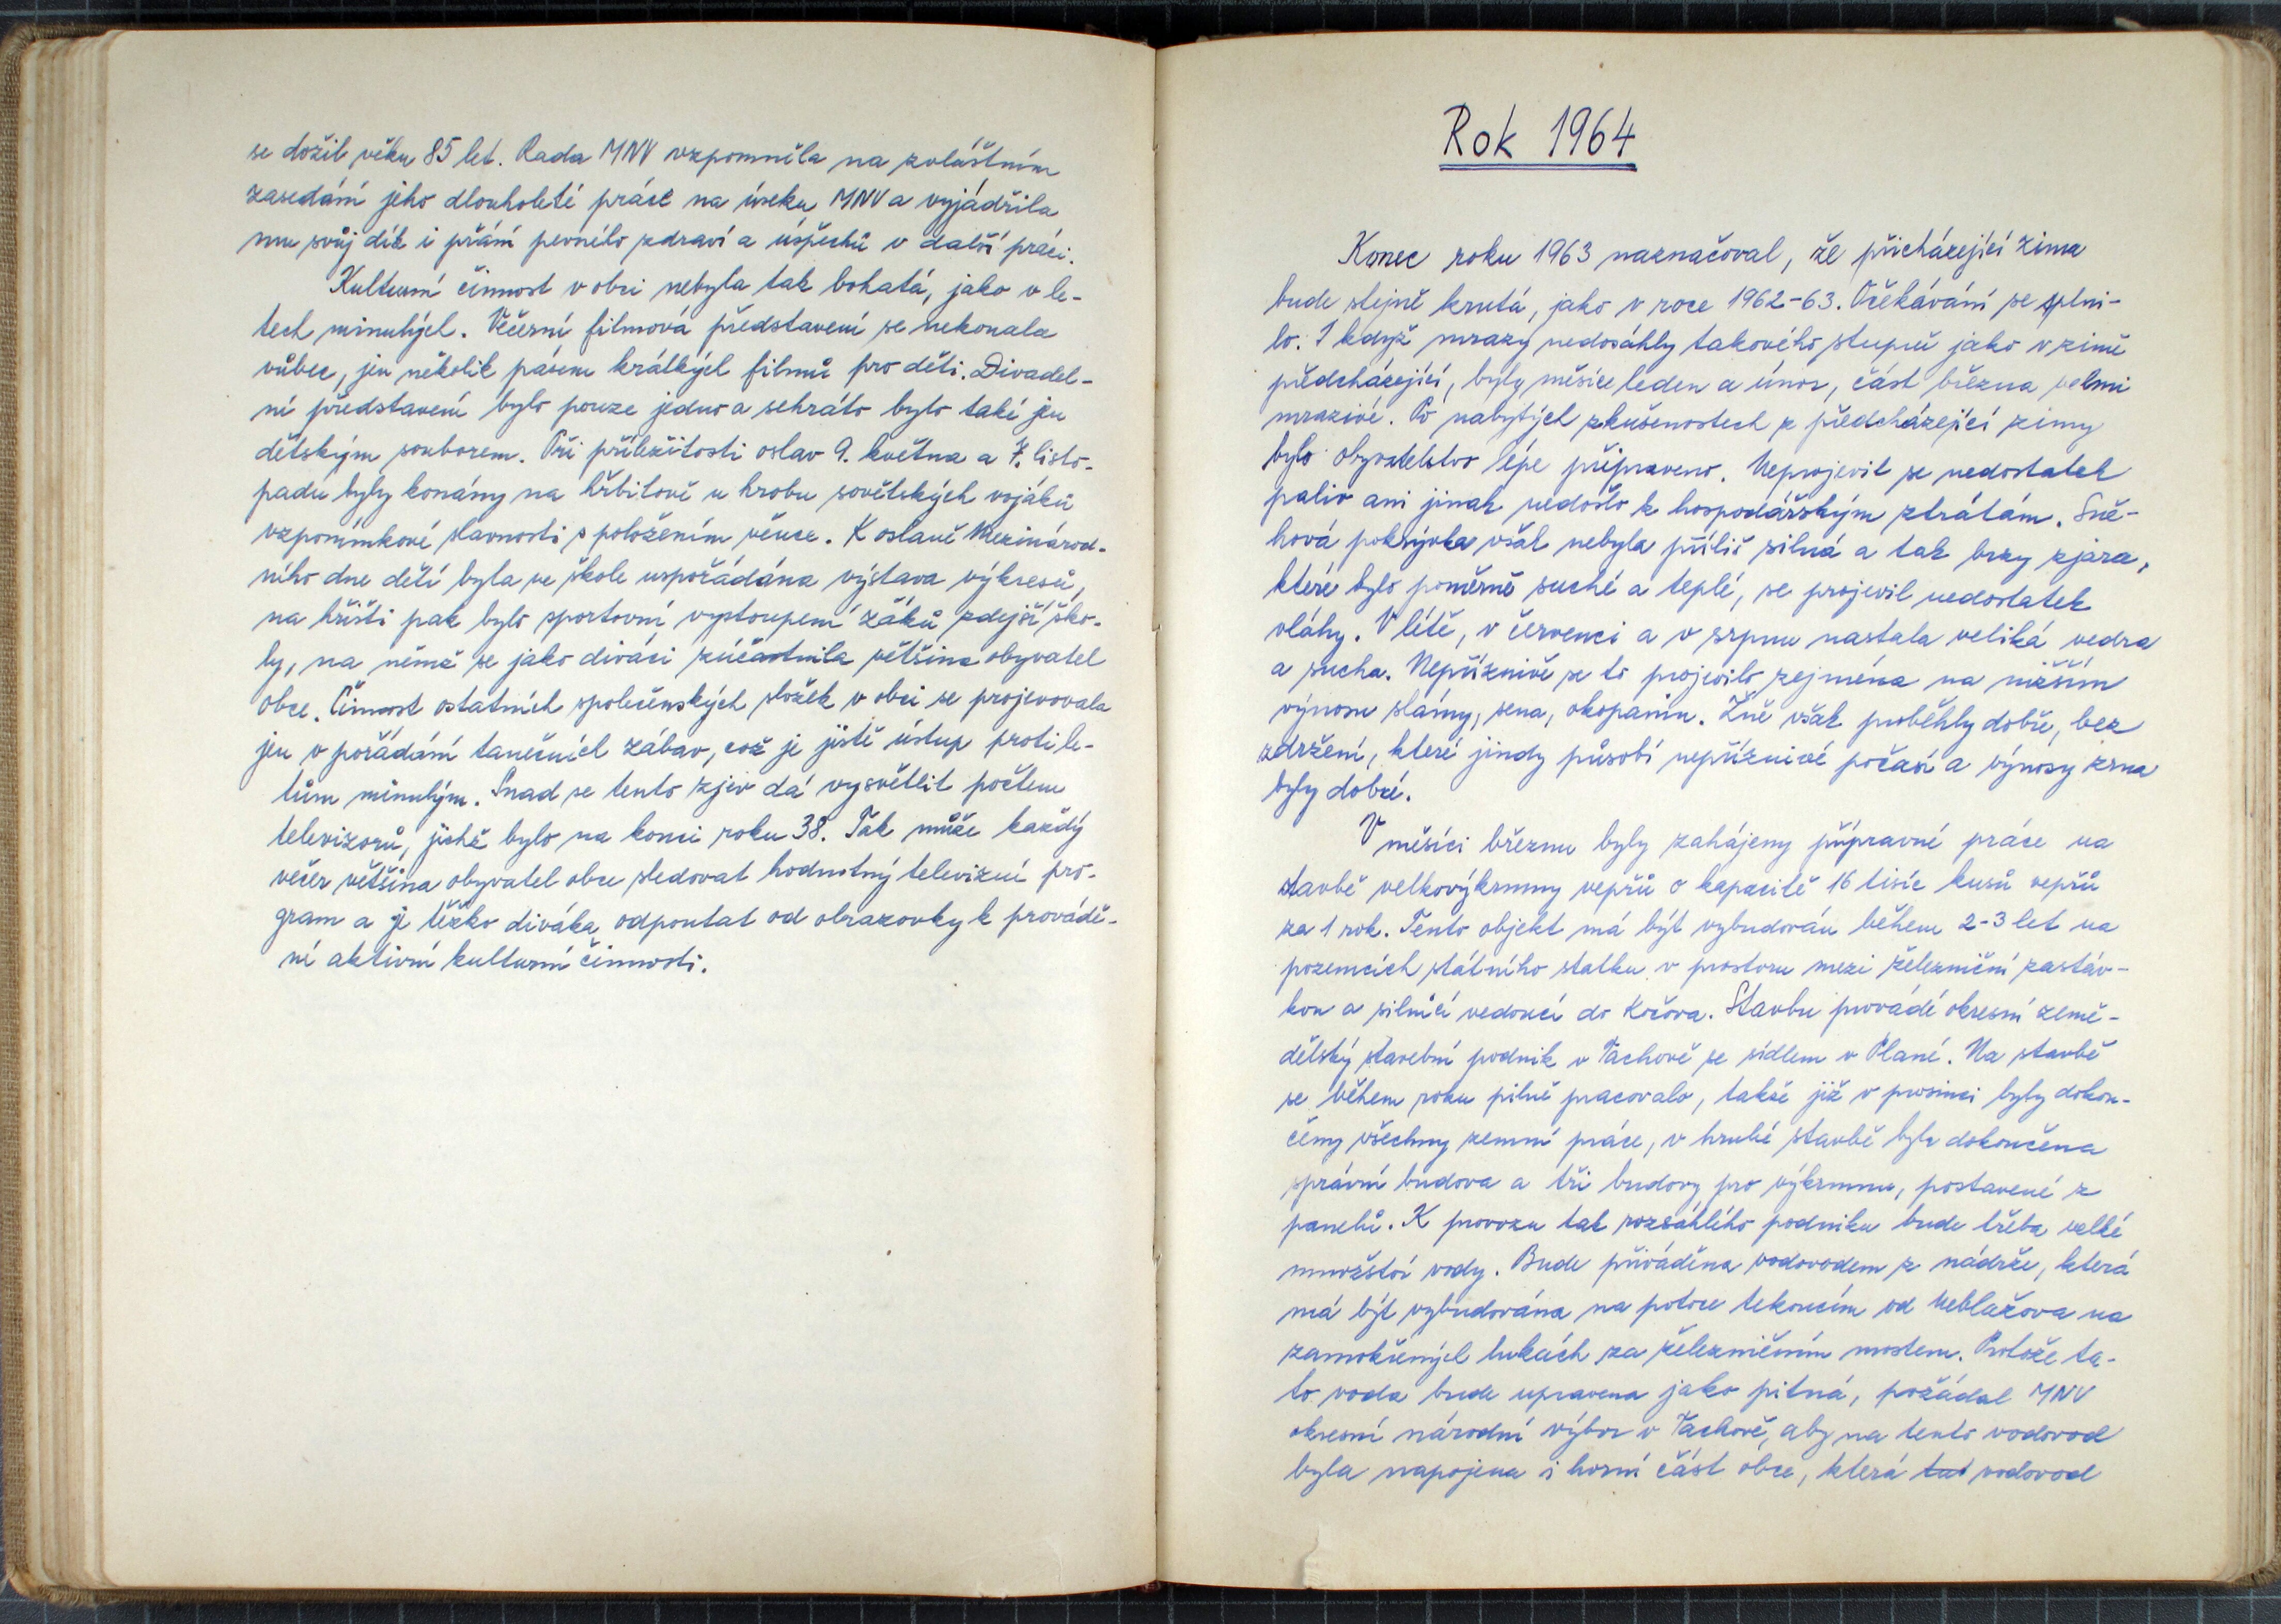 se dožil věku 85 let. Rada MNV vzpomněla na zvláštním
zasedání jeho dlouholeté práce na úseku MNV a vyjádřila
mu svůj dík i přání pevného zdraví a úspěchů v další práci.
Kulturní činnost v obci nebyla tak bohatá, jako v le-
tech minulých. Večerní filmová představení se nekonala
vůbec, jen několik pásem krátkých filmů pro děti. Divadel-
ní představení bylo pouze jedno a sehráto bylo také jen
dětským souborem. Při příležitosti oslav 9. května a 7. listo-
padu byly konány na hřbitově u hrobu sovětských vojáků
vzpomínkové slavnosti s položením věnce. K oslavě Mezinárod-
ního dne dětí byla ve škole uspořádána výstava výkresů,
na hřišti pak bylo sportovní vystoupení žáků zdejší ško-
ly, na němž se jako diváci zúčastnila většina obyvatel
obce. Činnost ostatních společenských složek v obci se projevovala
jen v pořádání tanečních zábav, což je jistě ústup proti le-
tům minulým. Snad se tento zjev dá vysvětlit počtem
televizorů, jichž bylo na konci roku 38. Tak může každý
večer většina obyvatel obce sledovat hodnotný televizní pro-
gram a je těžko diváka odpoutat od obrazovky k provádě-
ní aktivní kulturní činnosti.
Rok 1964
Konec roku 1963 naznačoval, že přicházející zima
bude stejně krutá, jako v roce 1962-63. Očekávání se splni-
lo. I když mrazy nedosáhly takového stupně jako v zimě
předcházející, byly měsíce leden a únor, část března velmi
mrazivé. Po nabytých zkušenostech z předcházející zimy
bylo obyvatelstvo lépe připraveno. Neprojevil se nedostatek
paliv ani jinak nedošlo k hospodářským ztrátám. Sně-
hová pokrývka však nebyla příliš silná a tak brzy zjara,
které bylo poměrně suché a teplé, se projevil nedostatek
vláhy. V létě, v červenci a v srpnu nastala veliká vedra
a sucha. Nepříznivě se to projevilo zejména na nižším
výnosu slámy, sena, okopanin. Žně však proběhly dobře, bez
zdržení, které jindy působí nepříznivé počasí a výnosy zrna
byly dobré.
V měsíci březnu byly zahájeny přípravné práce na
stavbě velkovýkrmny vepřů o kapacitě 16 tisíc kusů vepřů
za 1 rok. Tento objekt má být vybudován během 2-3 let na
pozemcích státního statku v prostoru mezi železniční zastáv-
kou a silnicí vedoucí do Kočova. Stavbu provádí okresní země-
dělský stavební podnik v Tachově se sídlem v Plané. Na stavbě
se během roku pilně pracovalo, takže již v prosinci byly dokon-
čeny všechny zemní práce, v hrubé stavbě byla dokončena
správní budova a tři budovy pro výkrmnu, postavené z
panelů. K provozu tak rozsáhlého podniku bude třeba velké
množství vody. Bude přiváděna vodovodem z nádrže, která
má být vybudována na potoce tekoucím od Neblažova na
zamokřených lukách za železničním mostem. Protože ta-
to voda bude upravena jako pitná, požádal MNV
okresní národní výbor v Tachově, aby na tento vodovod
byla napojena i horní část obce, která tut vodovod